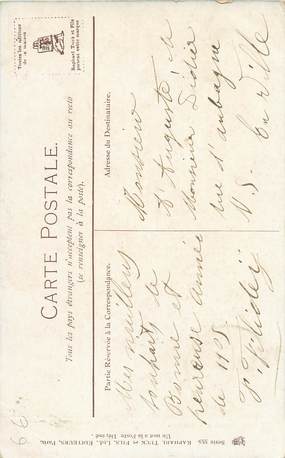 CARTE POSTALE.
Tous les pays étrangers n'acceptent pas la correspondance au recto
(se renseigner à la poste).
Toutes les éditions
de la maison
Raphael Tuck et Fils
portent cette marque
Partie Réservée à la Correspondance.
Mes meilleurs
souhaits de
Bonne et
heureuse année
de 1905
Adresse du Destinataire.
Monsieur
Auguste
Monsieur Didier
rue d'aubagne
En Ville
Serie 555. RAPHAEL TUCK ET FILS, Ltd., EDITEURS, Paris.